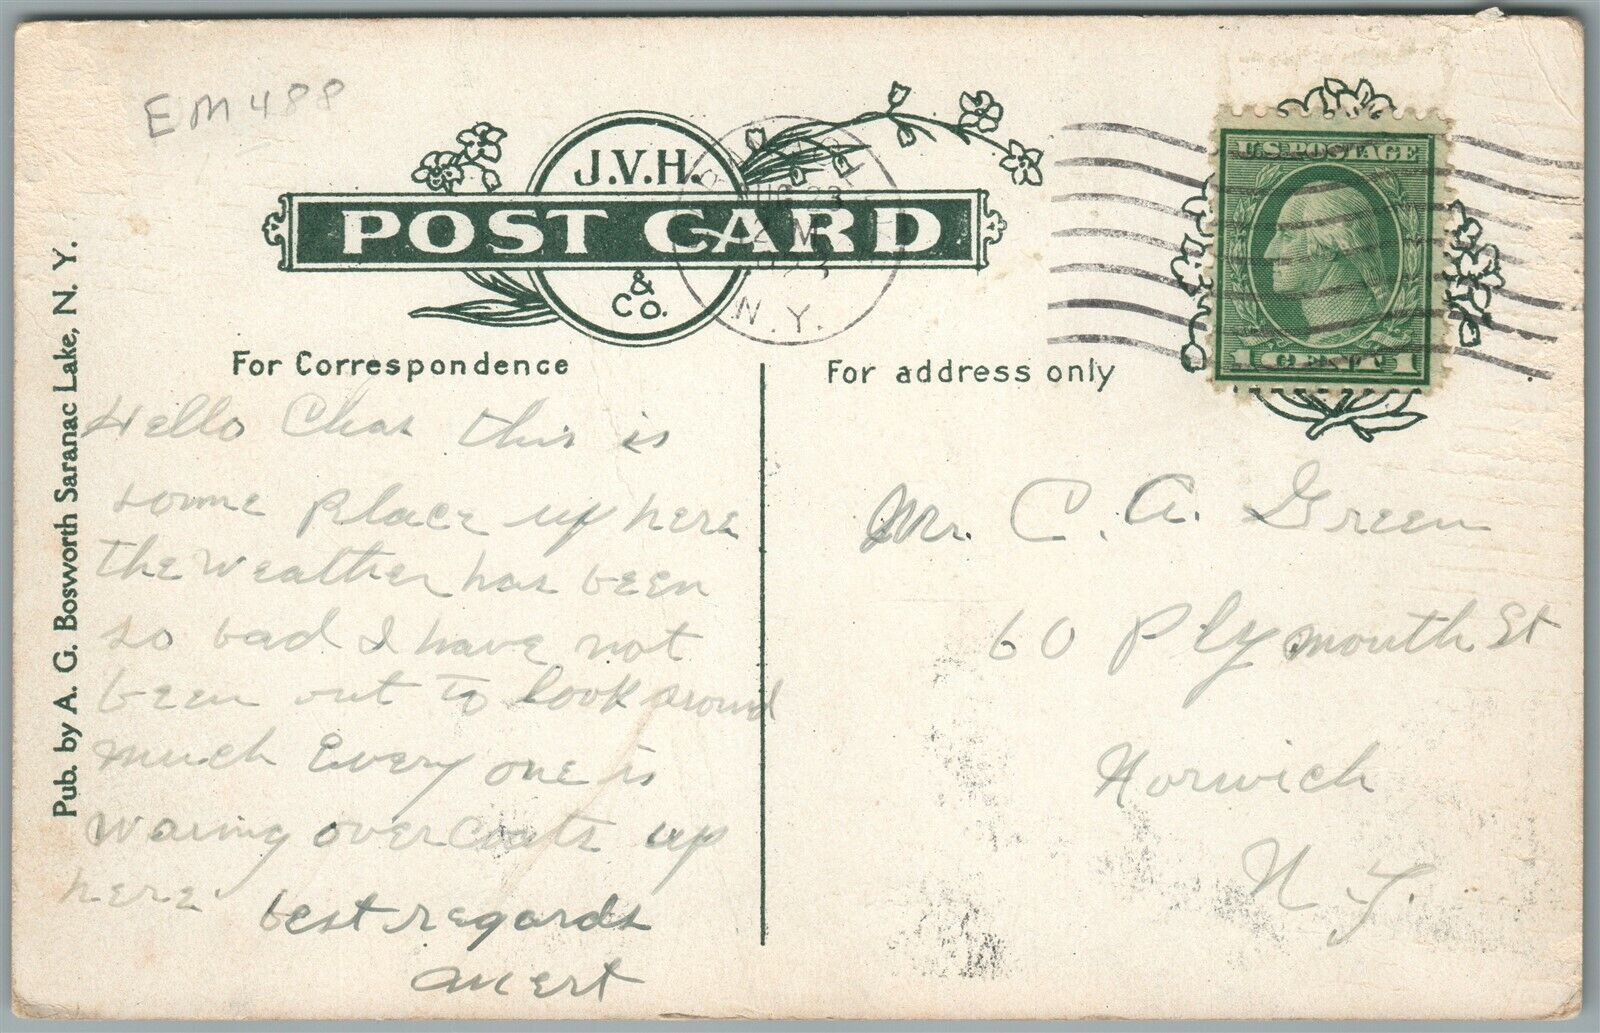 EM488
J.V.H.
POST CARD
& Co.
23
M
N.Y.
U.S. POSTAGE
1 CENT 1
Pub. by A. G. Bosworth Saranac Lake, N. Y.
For Correspondence
For address only
Hello Chas this is
some place up here
the weather has been
so bad I have not
been out to look around
much Every one is
waring overcoats up
here best regards
Mr. C. A. Green
60 Plymouth St
Norwich
N. Y.